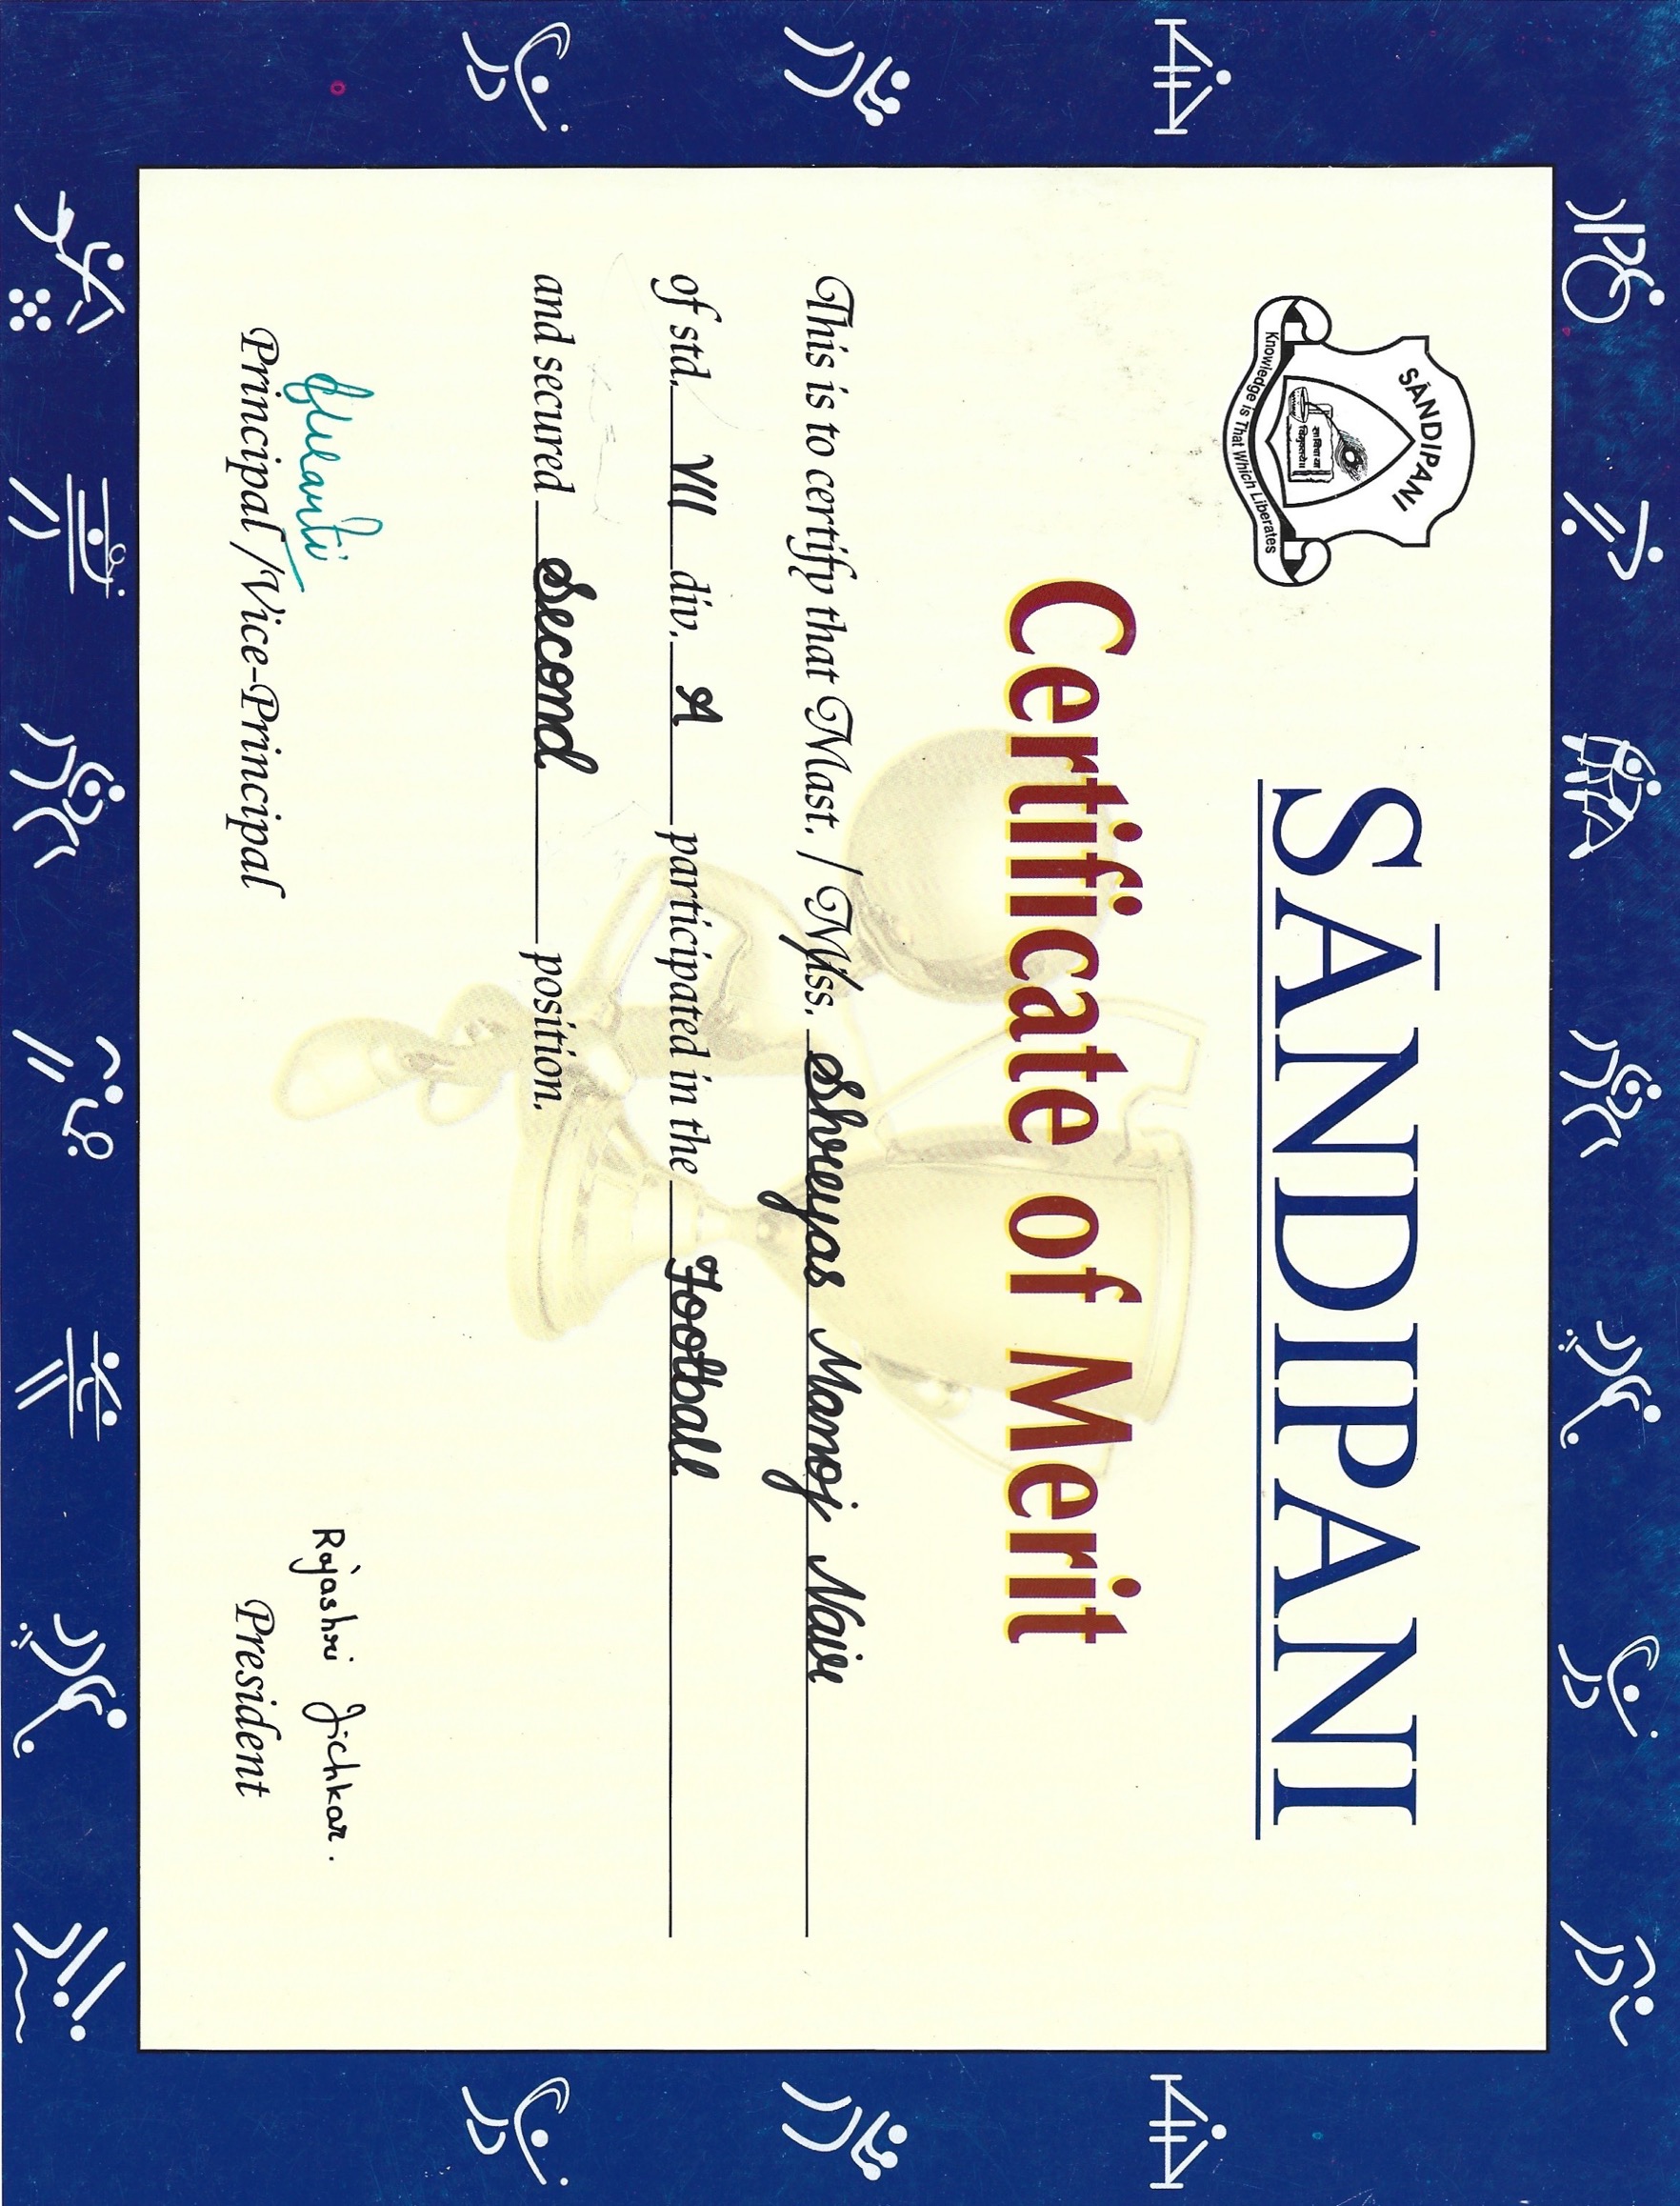 SĀNDIPANI
सा विद्या या
विमुक्तये॥
Knowledge is That Which Liberates
SĀNDIPANI
Certificate of Merit
This is to certify that Mast. / Miss. Shreyas Manoj Nair
of std. VII div. A participated in the Football
and secured Second position.
Rajashri Jichkar.
Principal /Vice-Principal
President